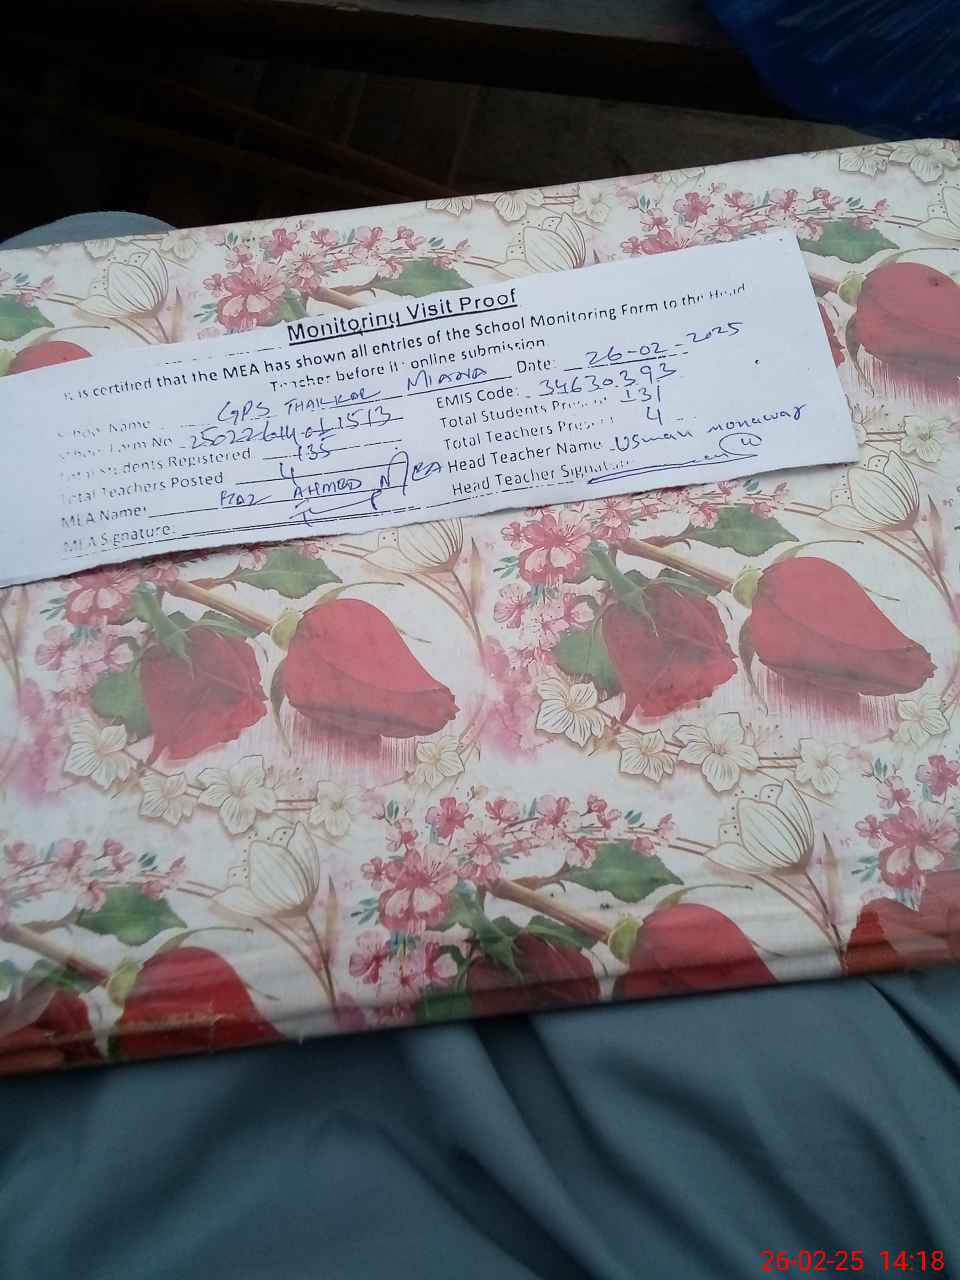 Monitoring Visit Proof
It is certified that the MEA has shown all entries of the School Monitoring Form to the Head
Teacher before it online submission.
School Name GPS THAIKKOE MIANA Date: 26-02-2025
School Form No EMIS Code: 34630393
Total Students Registered 135 Total Students Present 131
Total Teachers Posted 4 Total Teachers Present 4
MEA Name: AHMED Head Teacher Name Usman monawar
MEA Signature: Head Teacher Signature
26-02-25 14:18